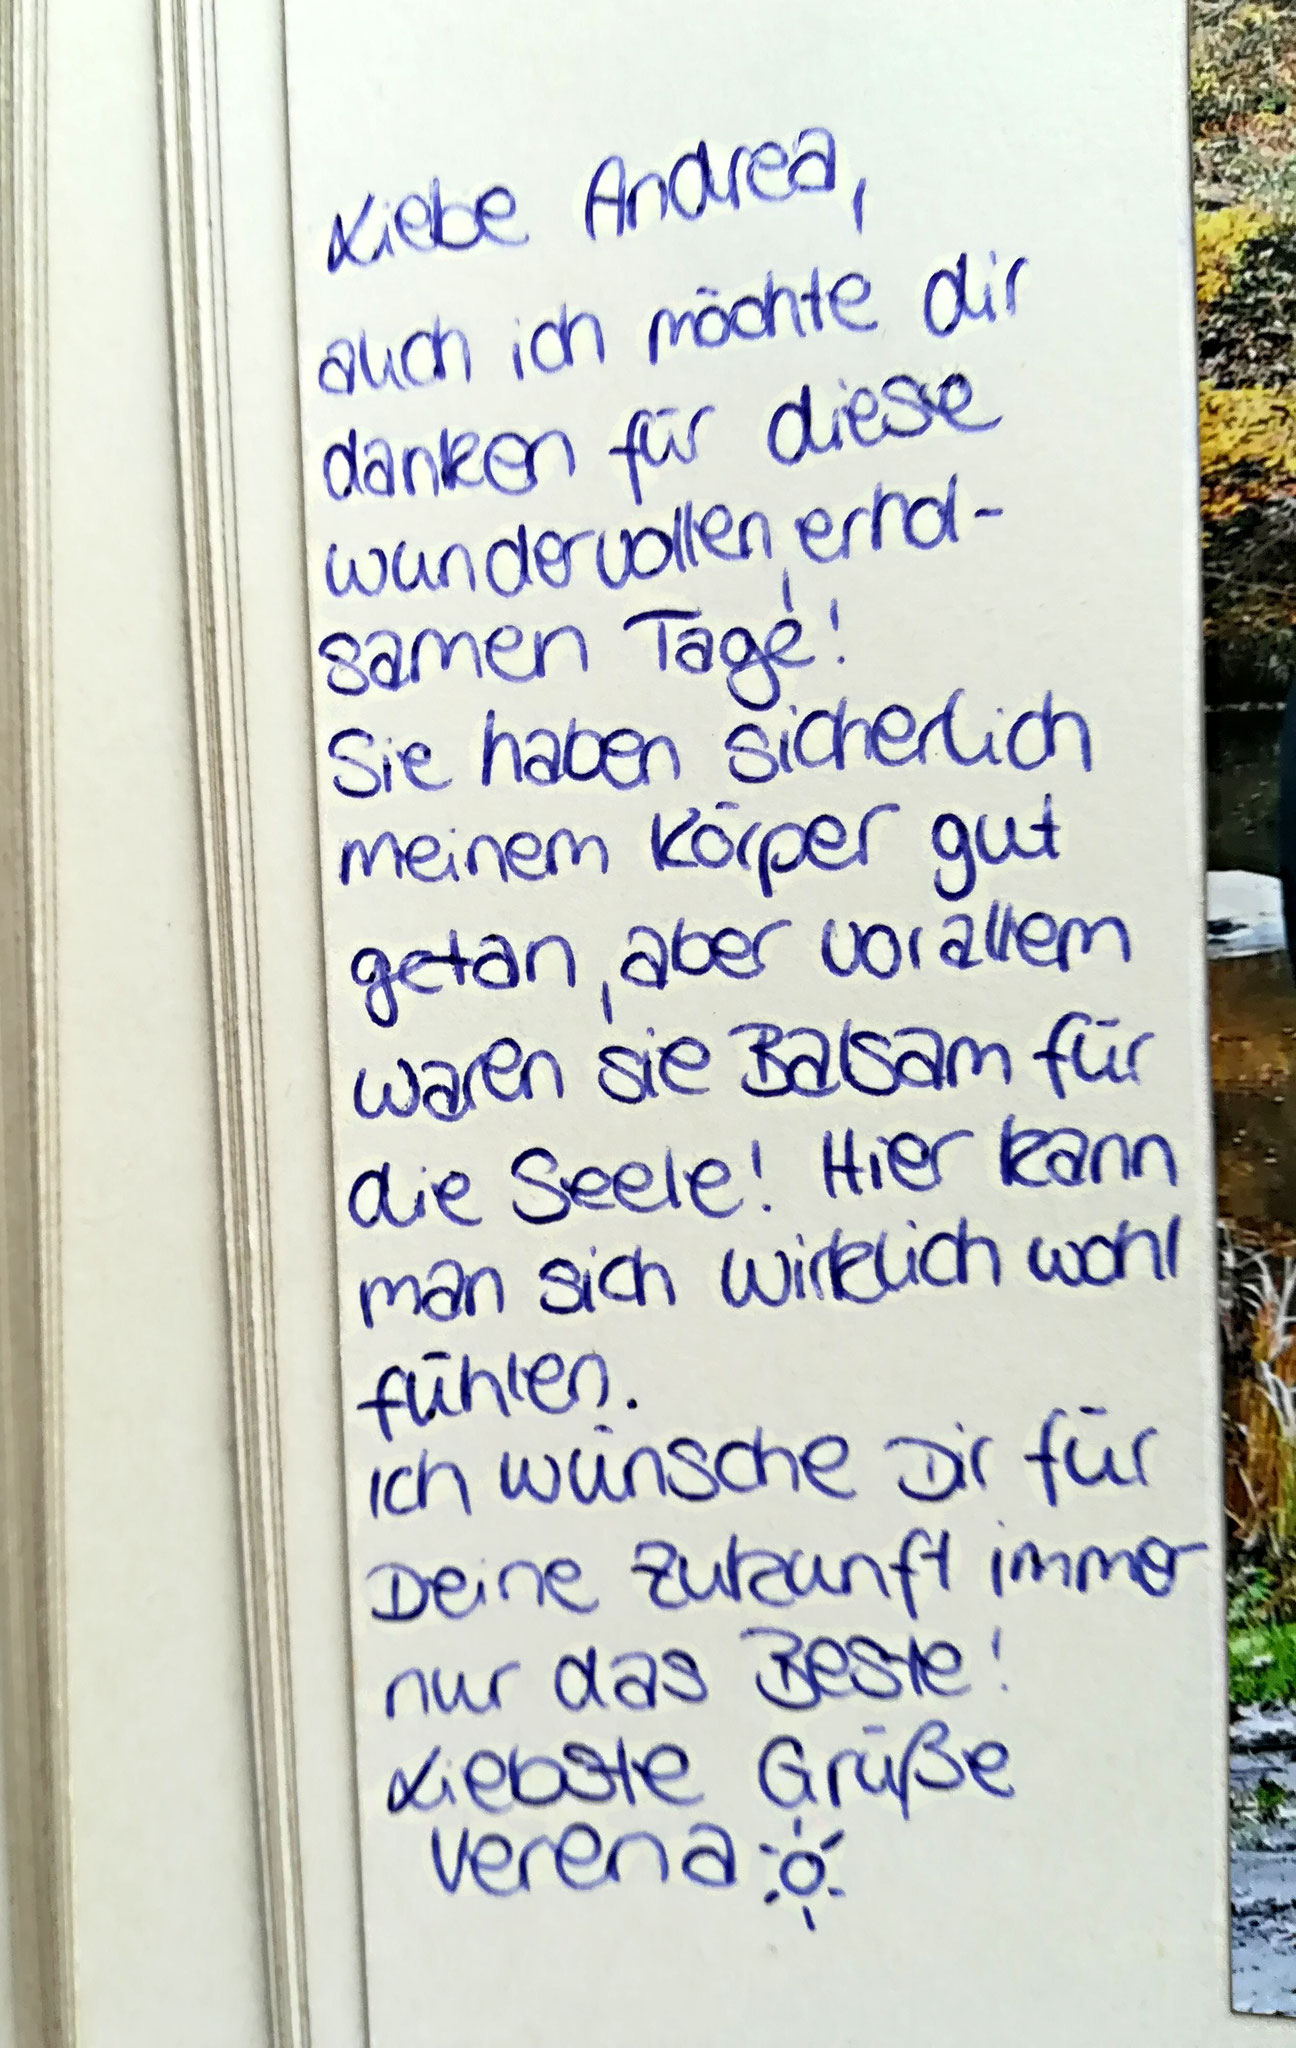 Liebe Andrea,
auch ich möchte dir
danken für diese
wundervollen, erhol-
samen Tage!
Sie haben sicherlich
meinem Körper gut
getan, aber vor allem
waren sie Balsam für
die Seele! Hier kann
man sich wirklich wohl
fühlen.
Ich wünsche Dir für
Deine Zukunft immer
nur das Beste!
Liebste Grüße
Verena